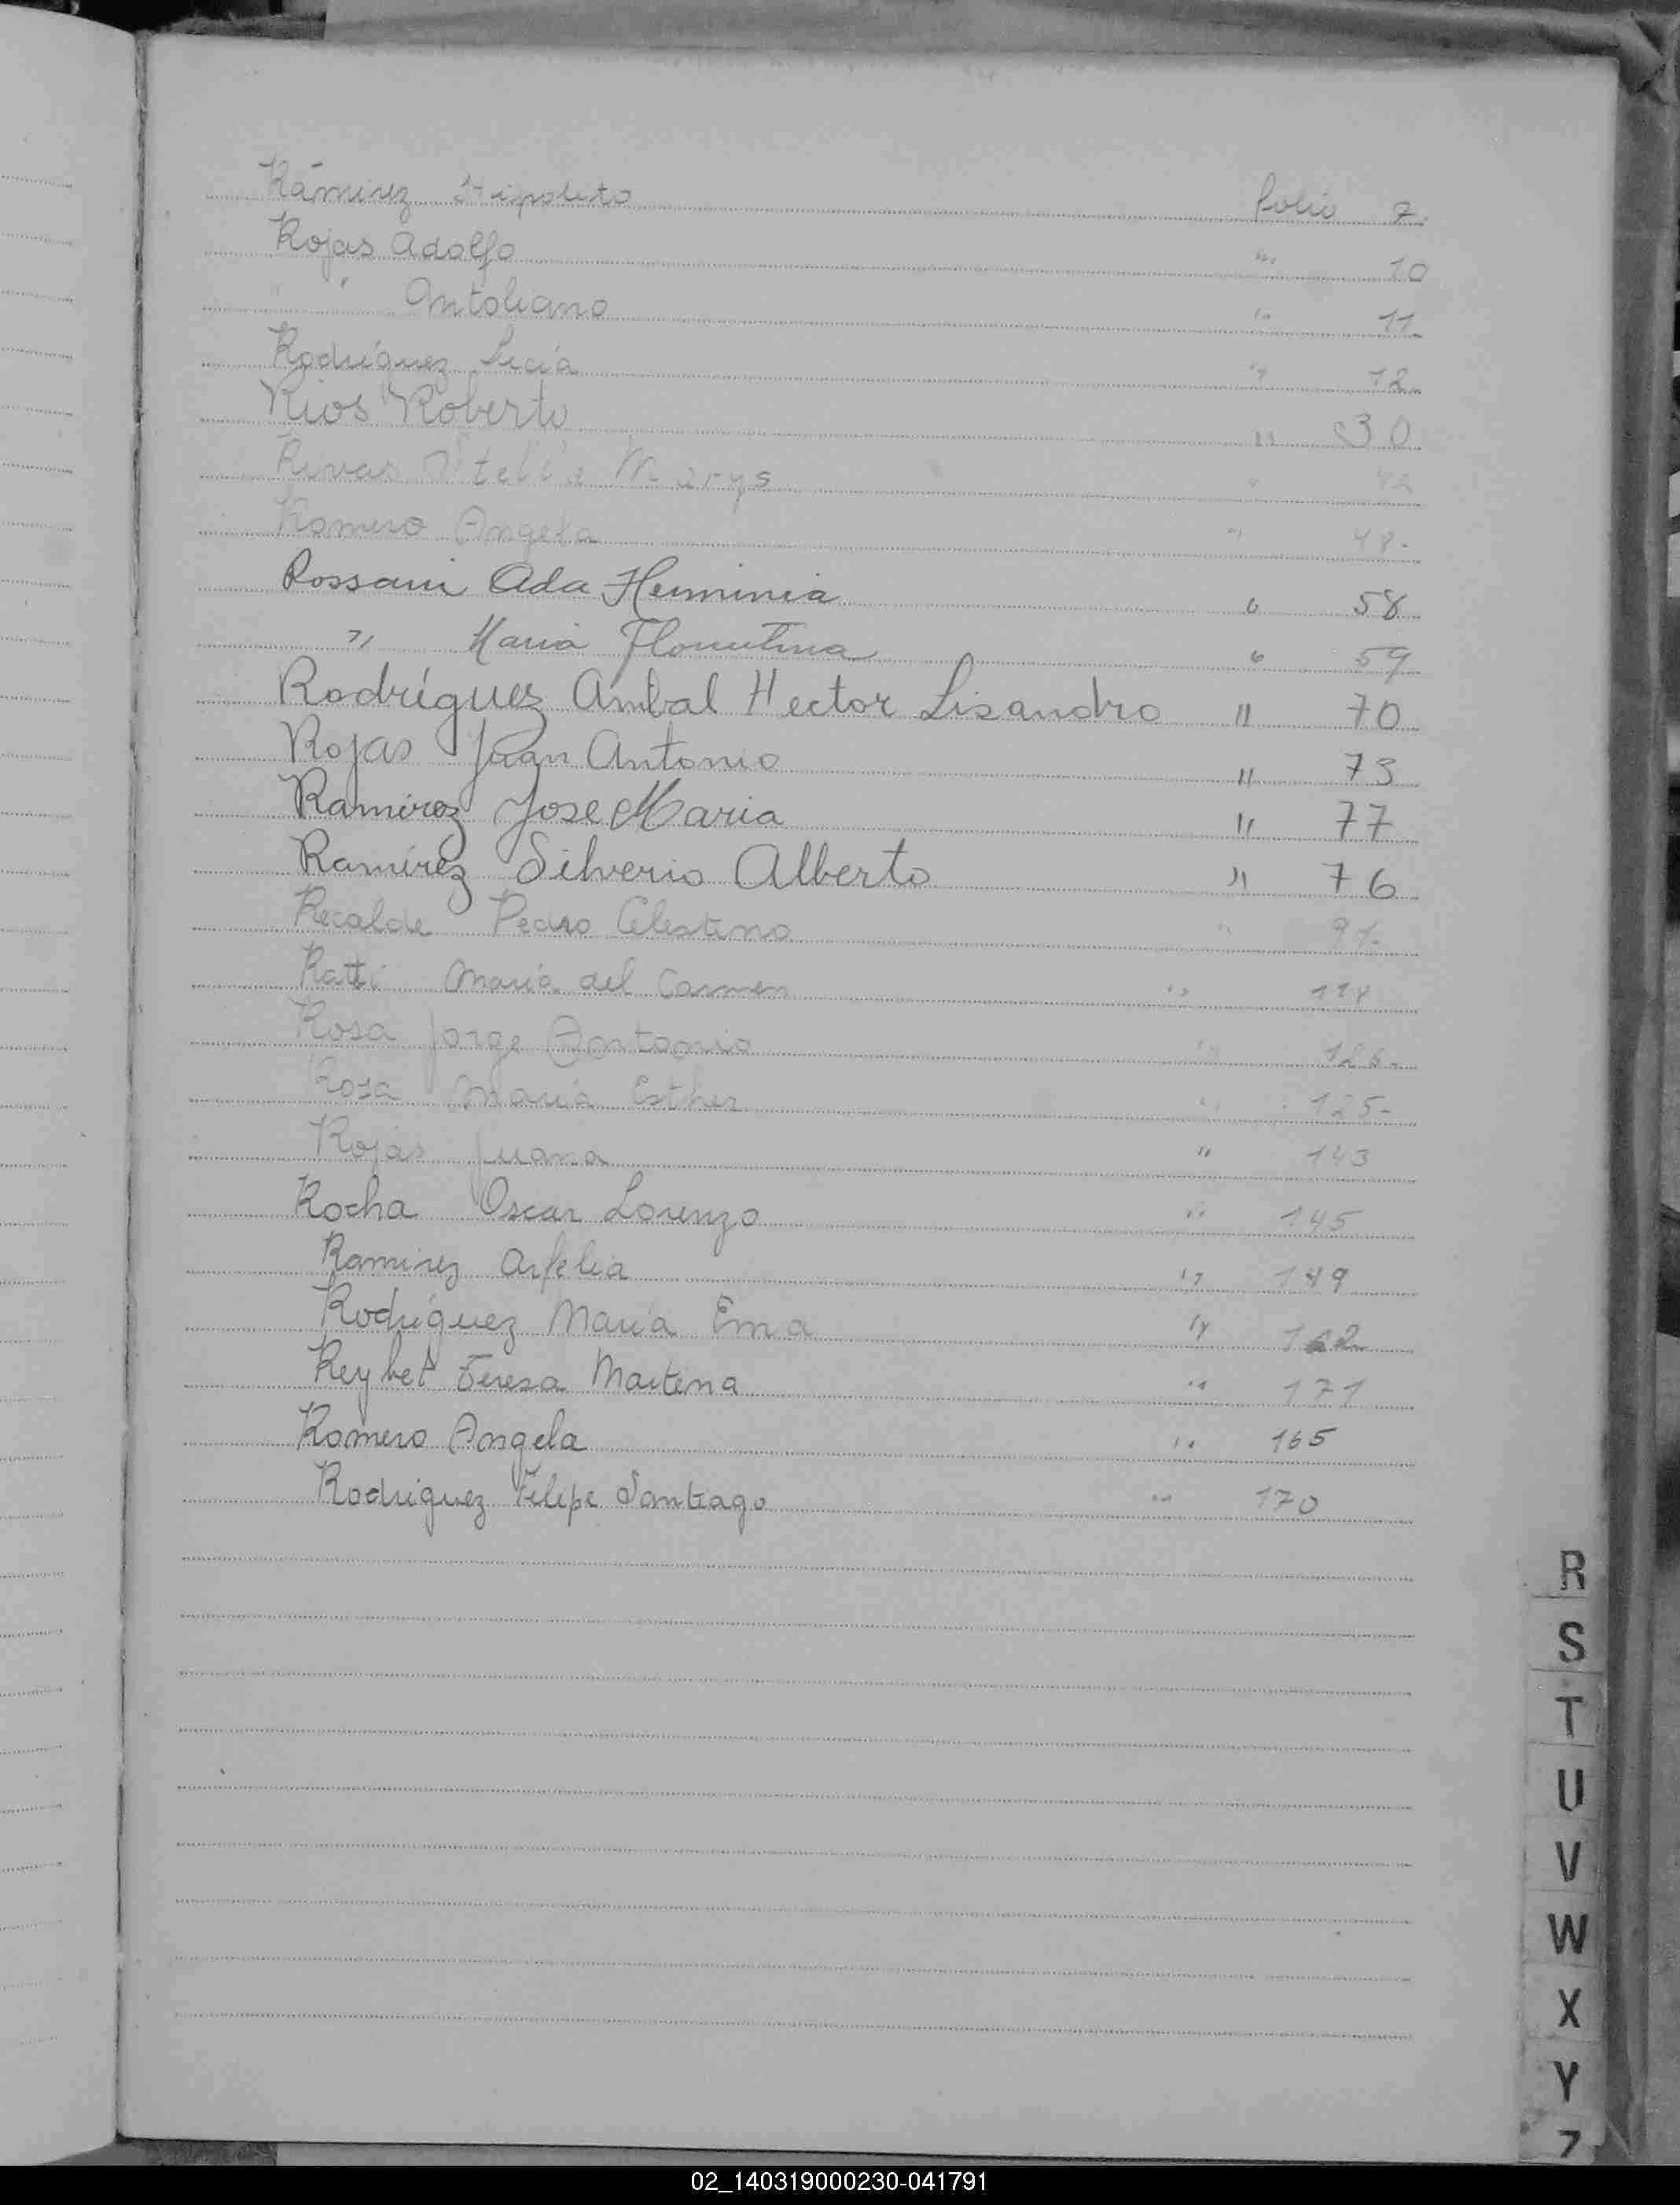 Rámirez Hipolito folio 7.
Rojas Adolfo " 10
" " Antoliano " 11
Rodríguez Lucia " 12
Rios Roberto " 30
Rivas Marys "
Romero Angela " 48-
Rossani Ada Herminia " 58
" Maria Florentina " 59
Rodríguez Anibal Hector Lisandro " 70
Rojas Juan Antonio " 73
Ramirez Jose Maria " 77
Ramírez Silverio Alberto " 76
Recalde Pedro Celestino " 91-
Ratti María del Carmen "
Rosa Jorge Antonio " 126-
Rosa María Esther " 125-
Rojas Juana " 143
Rocha Oscar Lorenzo " 145
Ramirez Orfelia " 149
Rodríguez María Ema " 162
Reybet Teresa Martina " 171
Romero Angela " 165
Rodriguez Felipe Santiago " 170
R
S
T
U
V
W
X
Y
Z
02_140319000230-041791